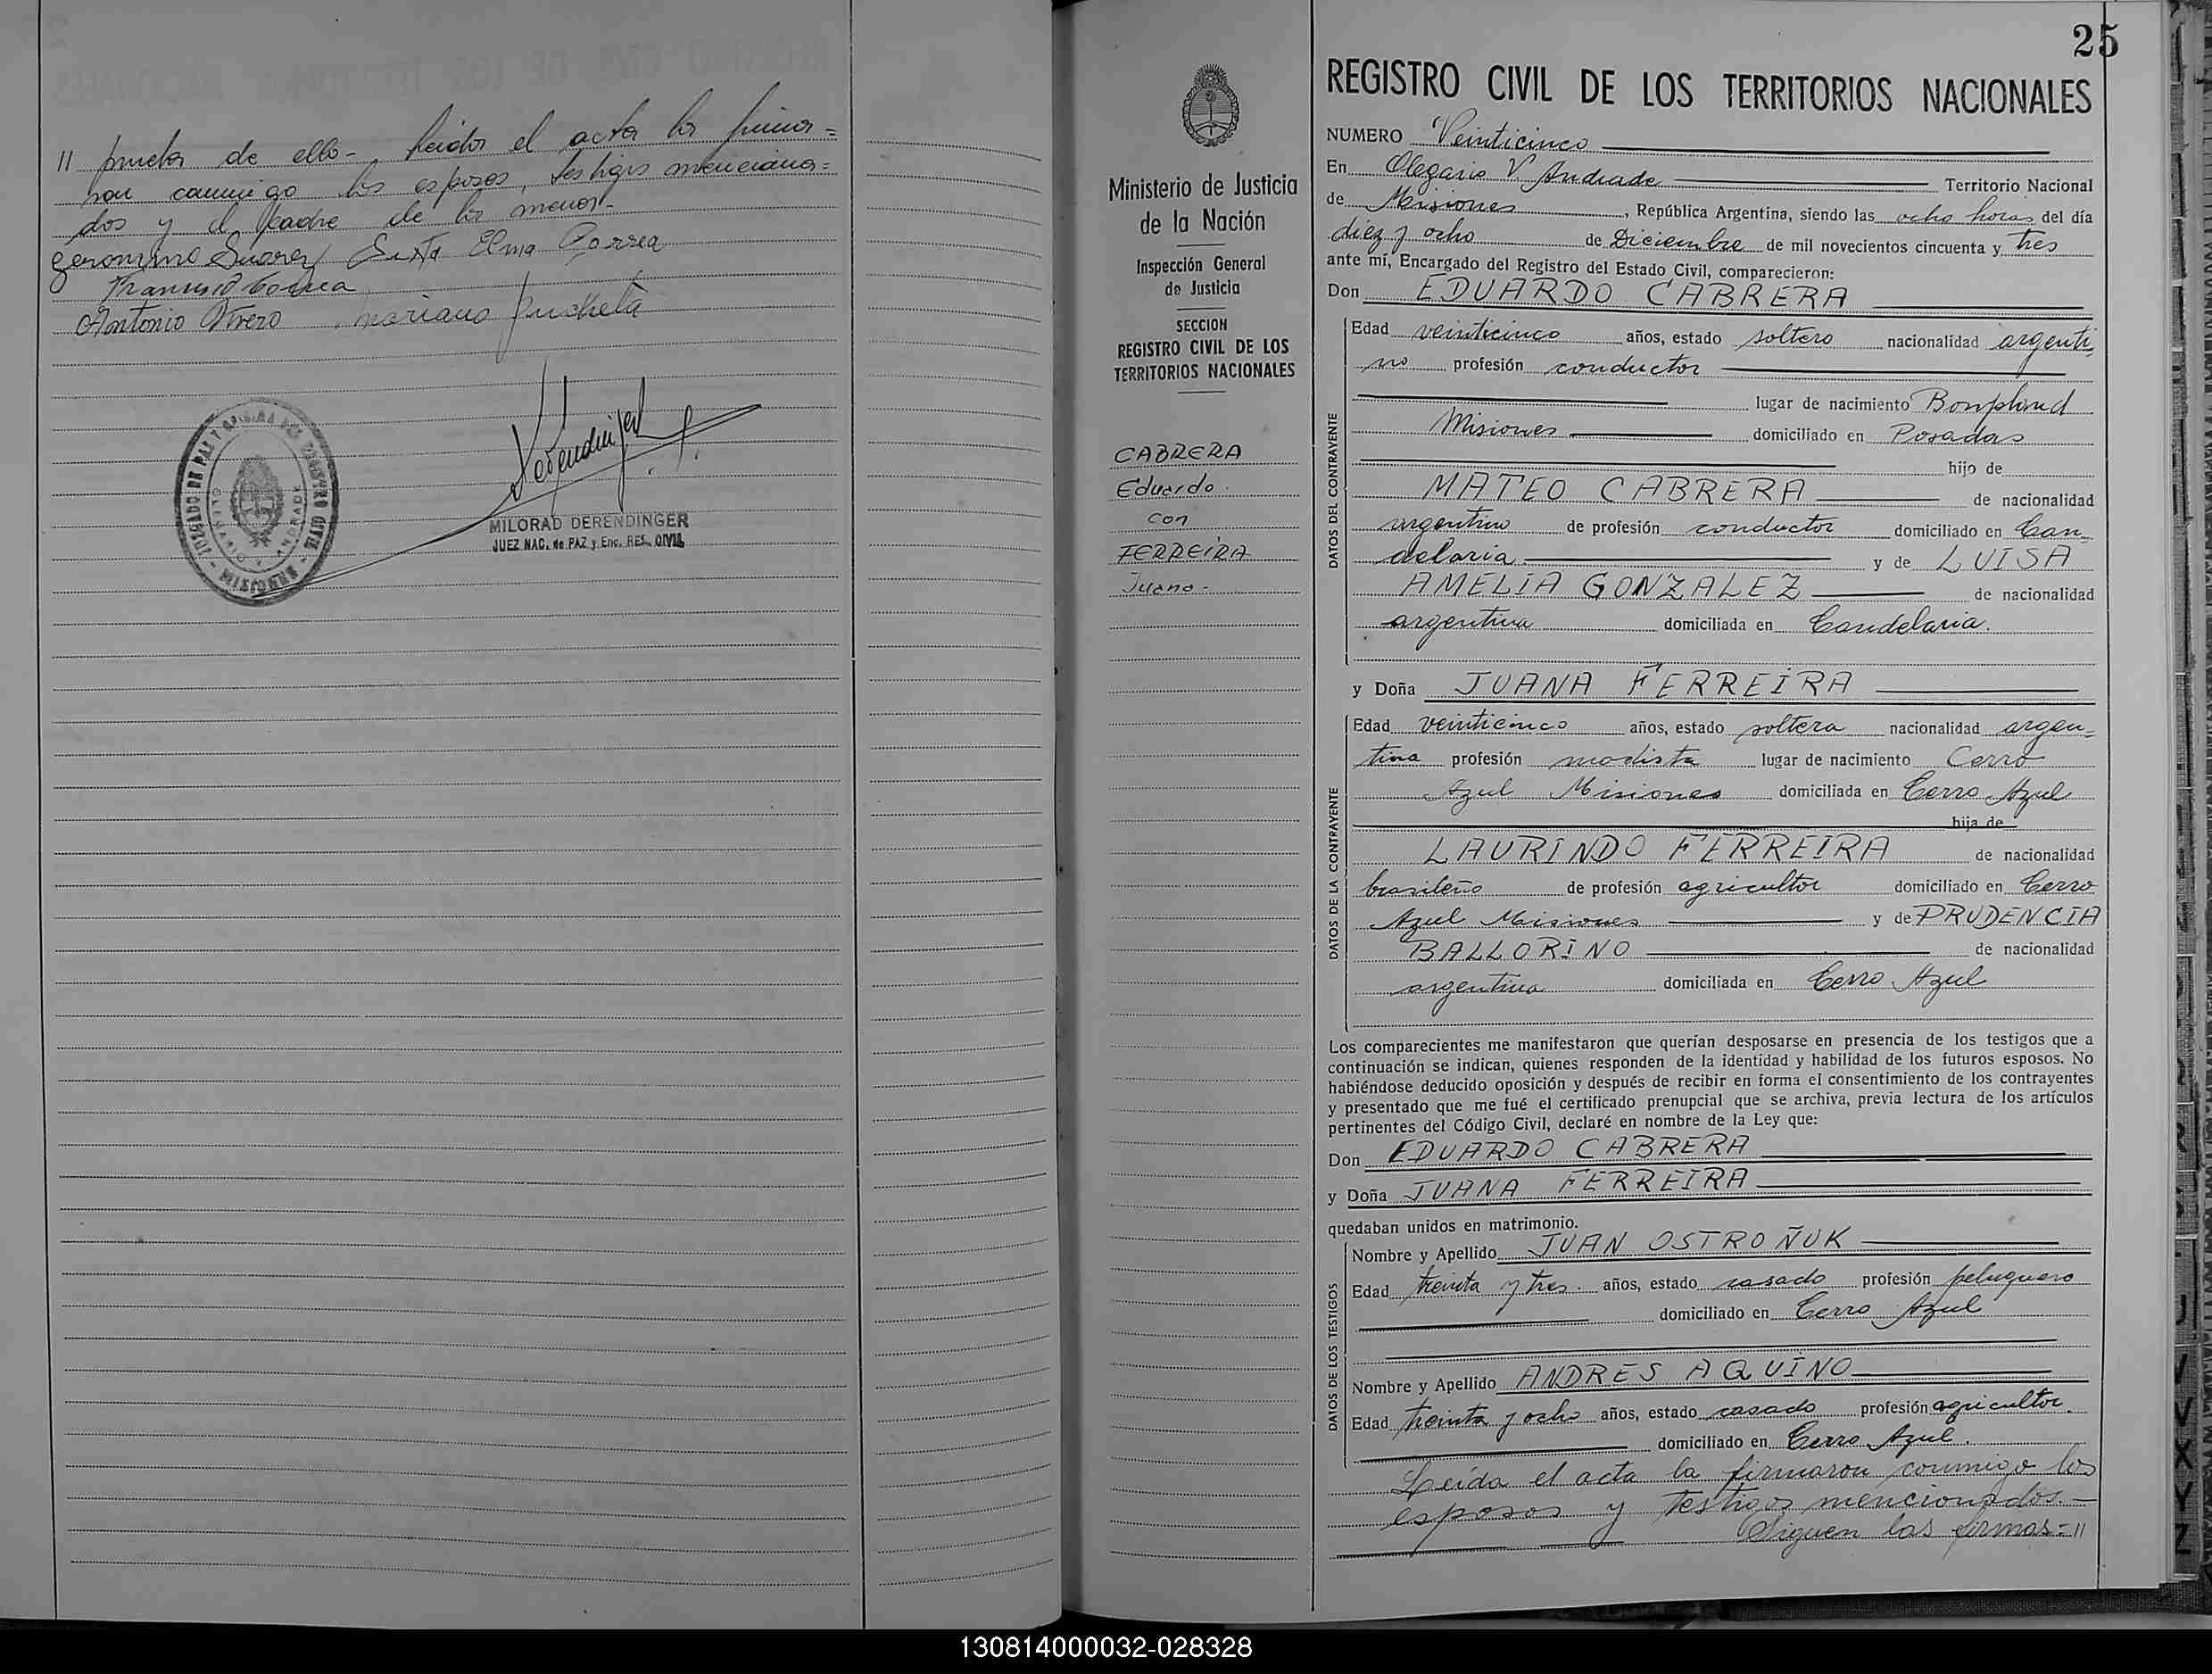 // prueba de ello- Leida el acta la firma=
ron conmigo los esposos, testigos menciona=
dos y el padre de la menor-
Geronimo Suarez Sixta Elma Correa
Francisco Correa
Antonio Mariano Pucheta
JUZGADO DE PAZ Y OFICINA DEL REGISTRO CIVIL
OLEGARIO V. ANDRADE
- MISIONES -
MILORAD DERENDINGER
JUEZ NAC. de PAZ y Enc. REG. CIVIL
25
Ministerio de Justicia
de la Nación
Inspección General
de Justicia
SECCION
REGISTRO CIVIL DE LOS
TERRITORIOS NACIONALES
CABRERA
Eduardo
con
FERREIRA
Juana-
REGISTRO CIVIL DE LOS TERRITORIOS NACIONALES
NUMERO Veinticinco
En Olegario V. Andrade Territorio Nacional
de Misiones, República Argentina, siendo las ocho horas del día
diez y ocho de Diciembre de mil novecientos cincuenta y tres
ante mí, Encargado del Registro del Estado Civil, comparecieron:
Don EDUARDO CABRERA
DATOS DEL CONTRAYENTE
Edad veinticinco años, estado soltero nacionalidad argenti
no profesión conductor
lugar de nacimiento Bonpland
Misiones domiciliado en Posadas
hijo de
MATEO CABRERA de nacionalidad
argentino de profesión conductor domiciliado en Can
delaria y de LUISA
AMELIA GONZALEZ de nacionalidad
argentina domiciliada en Candelaria.
y Doña JUANA FERREIRA
DATOS DE LA CONTRAYENTE
Edad veinticinco años, estado soltera nacionalidad argen=
tina profesión modista lugar de nacimiento Cerro
Azul Misiones domiciliada en Cerro Azul
hija de
LAURINDO FERREIRA de nacionalidad
brasileño de profesión agricultor domiciliado en Cerro
Azul Misiones y de PRUDENCIA
BALLORINO de nacionalidad
argentina domiciliada en Cerro Azul
Los comparecientes me manifestaron que querían desposarse en presencia de los testigos que a
continuación se indican, quienes responden de la identidad y habilidad de los futuros esposos. No
habiéndose deducido oposición y después de recibir en forma el consentimiento de los contrayentes
y presentado que me fué el certificado prenupcial que se archiva, previa lectura de los artículos
pertinentes del Código Civil, declaré en nombre de la Ley que:
Don EDUARDO CABRERA
y Doña JUANA FERREIRA
quedaban unidos en matrimonio.
DATOS DE LOS TESTIGOS
Nombre y Apellido JUAN OSTROÑUK
Edad treinta y tres años, estado casado profesión peluquero
domiciliado en Cerro Azul
Nombre y Apellido ANDRES AQUINO
Edad treinta y ocho años, estado casado profesión agricultor.
domiciliado en Cerro Azul.
Leída el acta la firmaron conmigo los
esposos y testigos mencionados.-
Siguen las firmas=//
130814000032-028328